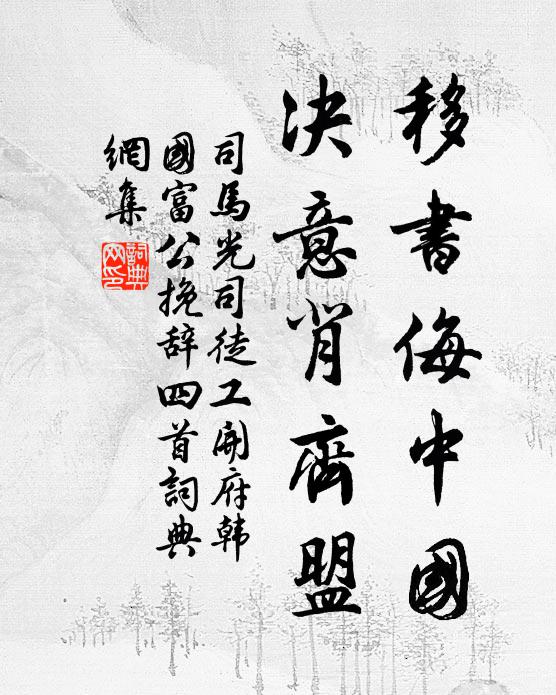 移書侮中國
决意背齊盟
司馬光司徒工開府韩
國富公挽辞四首詞典
網集
詞典
网印